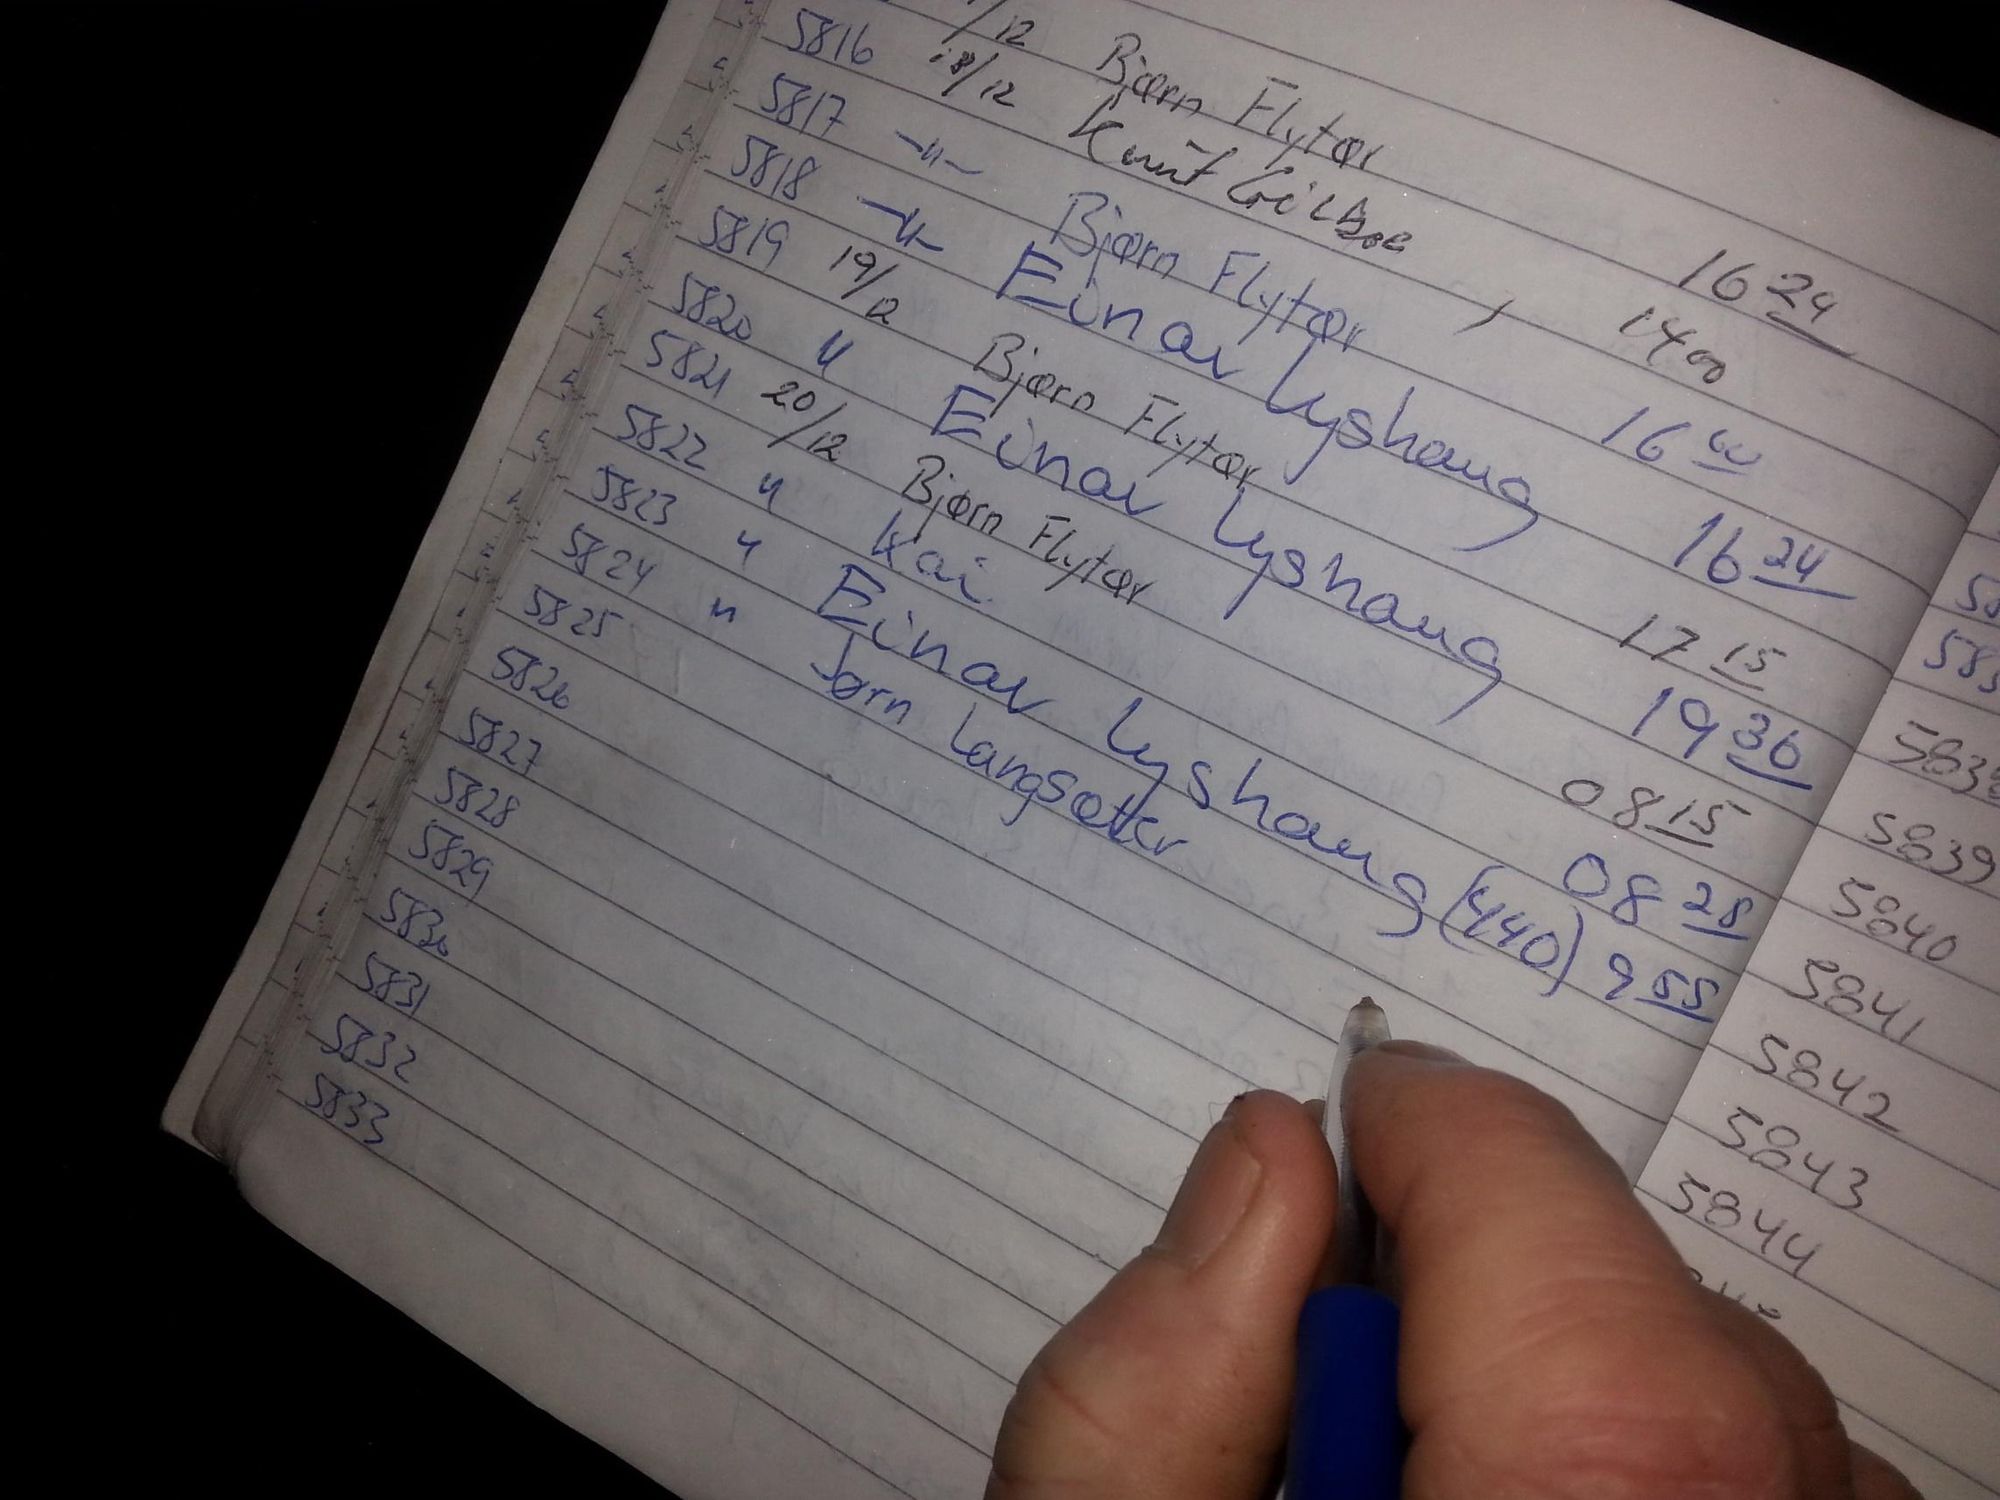 /12 Bjørn Flytør 16 24
5816 18/12 Knut 14 00
5817 -"- Bjørn Flytør 16 00
5818 -"- Einar Lyshaug 16 24
5819 19/12 Bjørn Flytør 17 15
5820 " Einar Lyshaug 19 36
5821 20/12 Bjørn Flytør 08 15
5822 " Kai 08 28
5823 " Einar Lyshaug (440) 9 55
5824 " Jørn Langsæter
5825
5826
5827
5828
5829
5830
5831
5832
5833
5839
5840
5841
5842
5843
5844